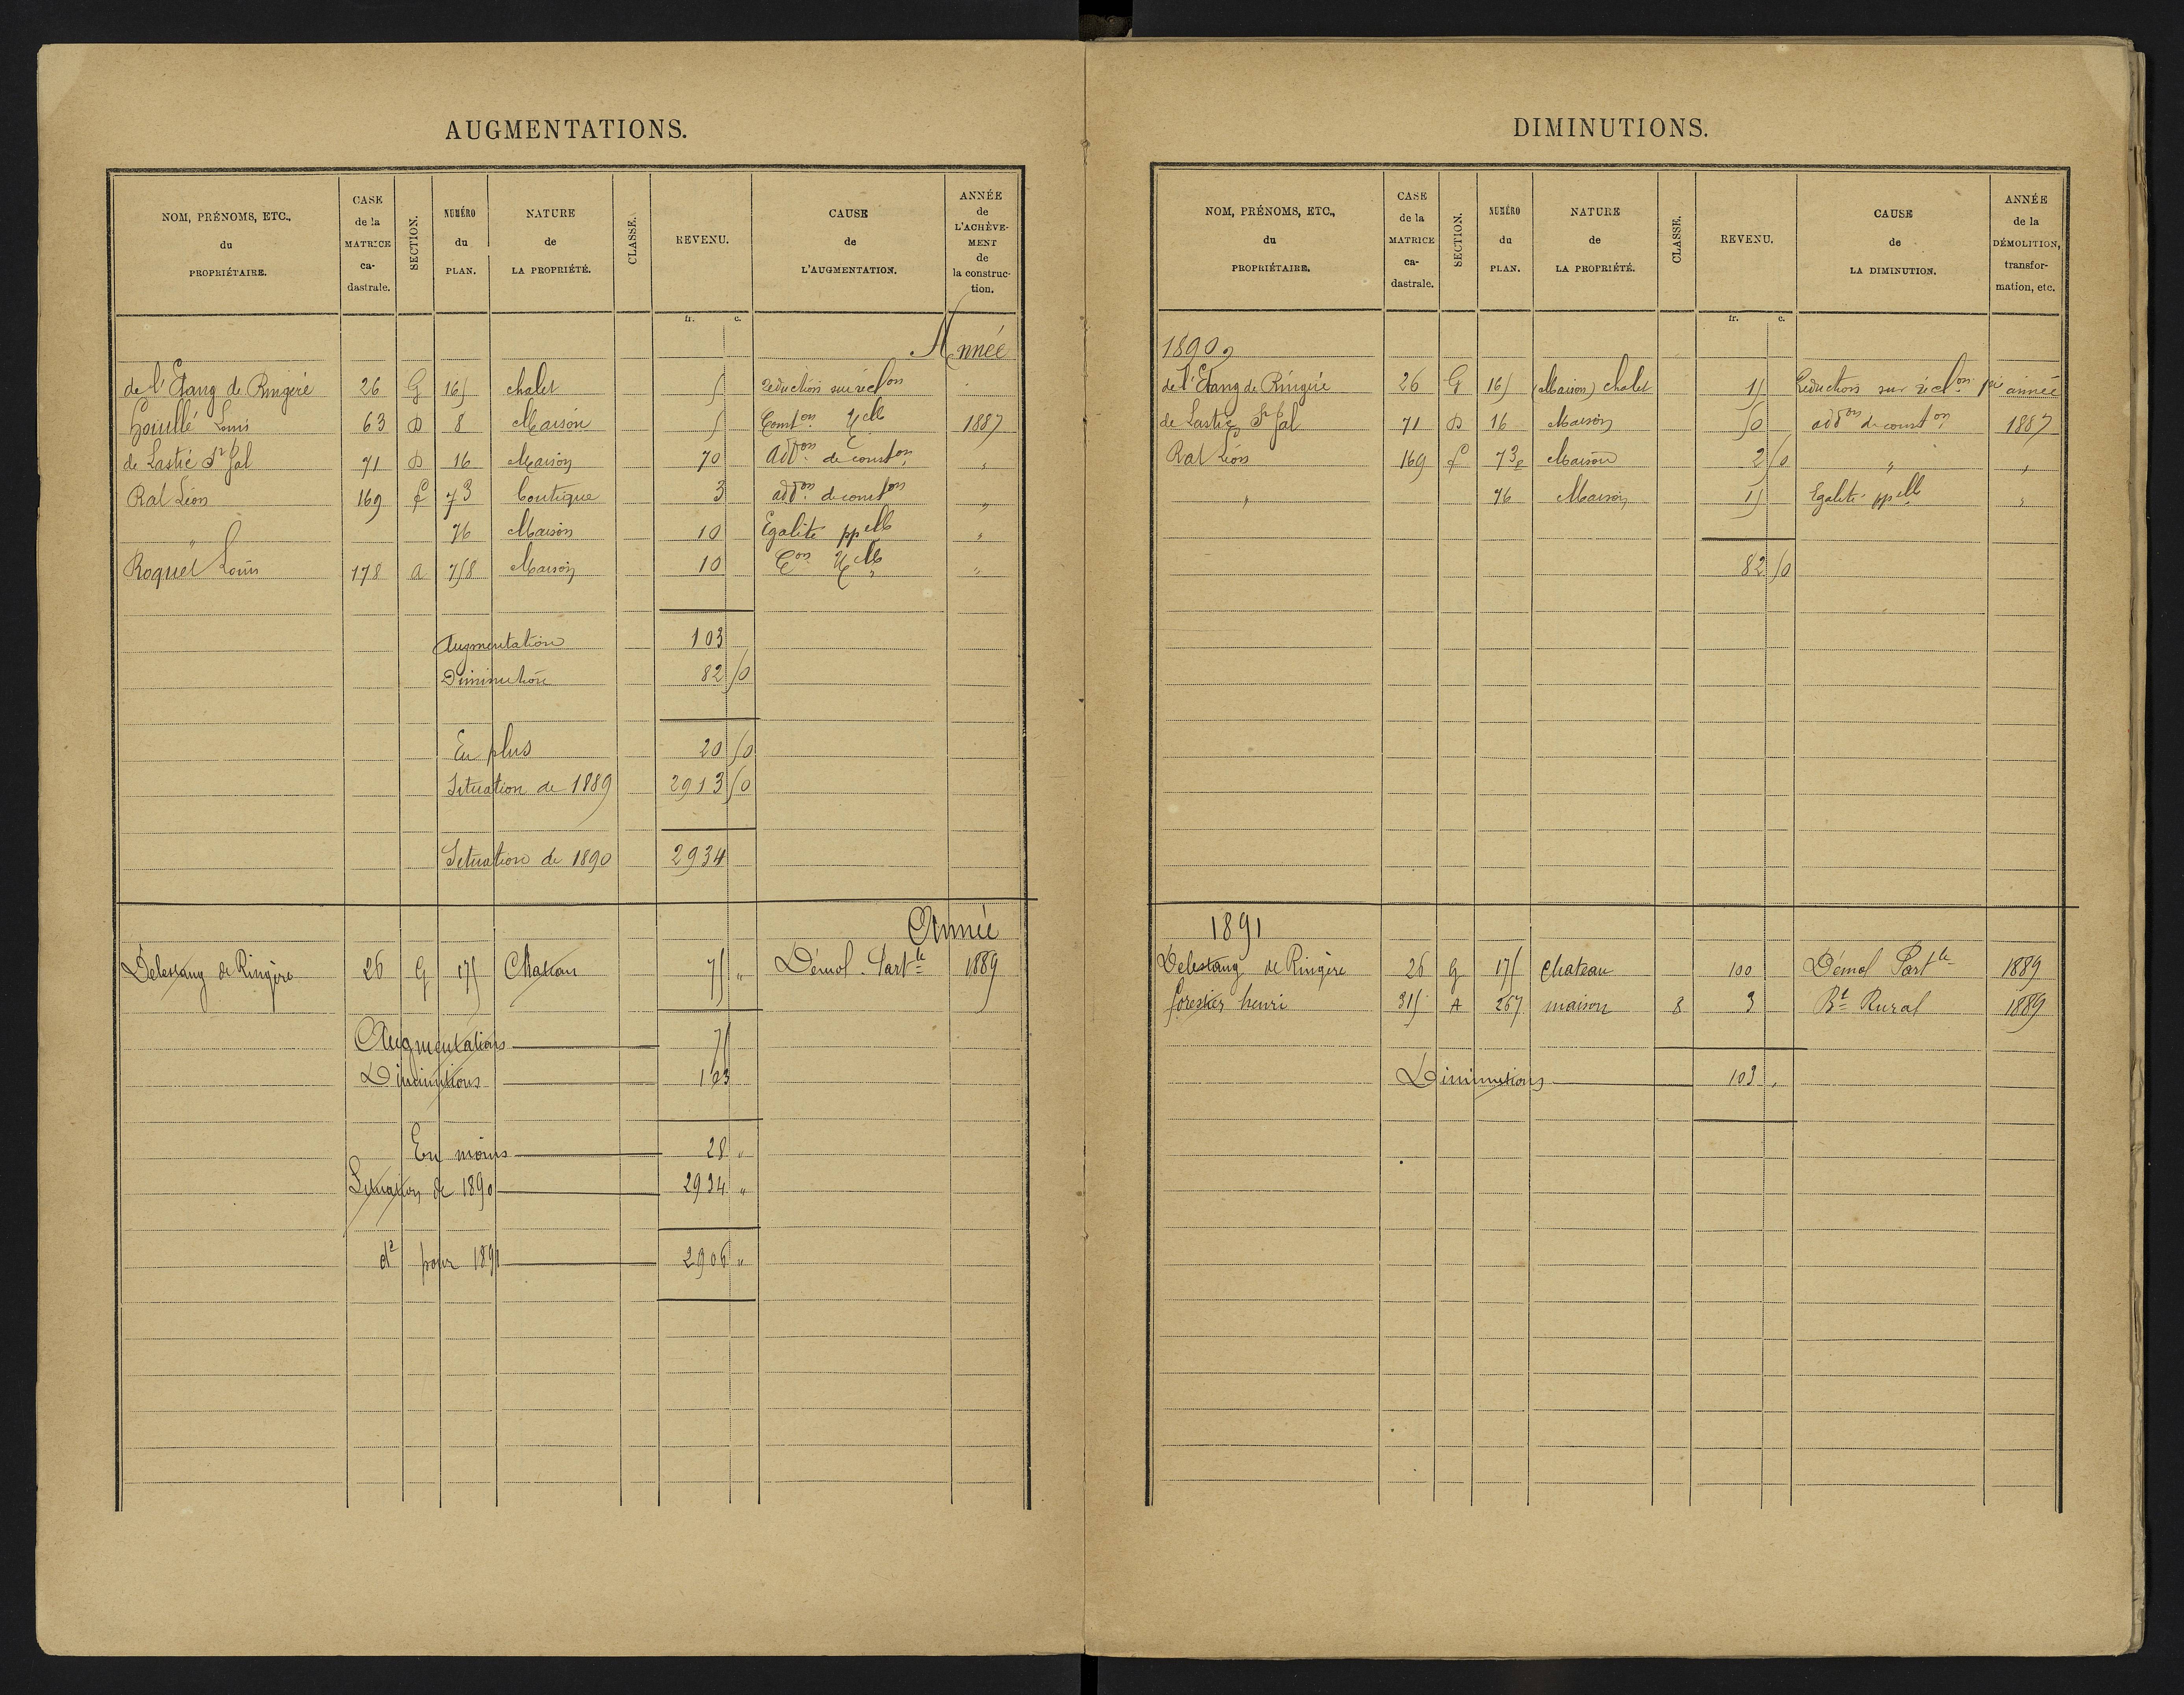 AUGMENTATIONS.
NOM, PRÉNOMS, ETC., du PROPRIÉTAIRE. CASE de la MATRICE ca- dastrale. SECTION. NUMÉRO du PLAN. NATURE de LA PROPRIÉTÉ. CLASSE. REVENU. CAUSE de L'AUGMENTATION. ANNÉE de L'ACHÈVE- MENT de la construc- tion.
fr. c.
Année
de l'Etang de Ringere 26 G 165 chalet 5 reduction sur récl.on
Houllé Louis 63 D 8 Maison 5 Const.on Nelle 1887
de Lastic St Jal 71 D 16 Maison 70 add.on de const.on "
Rat Léon 169 f 73 boutique 3 add.on de const.on "
" 76 Maison 10 Egalité pp.elle "
Roquet Louis 178 a 758 Maison 10 C.on Nelle "
Augmentation 103
Diminution 82 50
En plus 20 50
Situation de 1889 2913 50
Situation de 1890 2934
Année
Delestang de Ringère 26 G 175 Chateau 75 " Démol. Part.le 1889
Augmentations 75
Diminutions 103
En moins 28 "
Situation de 1890 2934 "
d° pour 1891 2906 "
DIMINUTIONS.
NOM, PRÉNOMS, ETC., du PROPRIÉTAIRE. CASE de la MATRICE ca- dastrale. SECTION. NUMÉRO du PLAN. NATURE de LA PROPRIÉTÉ. CLASSE. REVENU. CAUSE de LA DIMINUTION. ANNÉE de la DÉMOLITION, transfor- mation, etc.
fr. c.
1890
de l'Etang de Ringere 26 G 165 (Maison) chalet 15 Reduction sur récl.on année
de Lastic St Jal 71 D 16 Maison 50 add.on de const.on 1887
Rat Léon 169 f 73 Maison 2 50 " "
" 76 Maison 15 Egalité pp.elle "
82 50
1891
Delestang de Ringère 26 G 175 Chateau 100 Démol Part.le 1889
forestier henri 315 A 267 maison 8 3 Bt Rural 1889
Diminutions 103 "